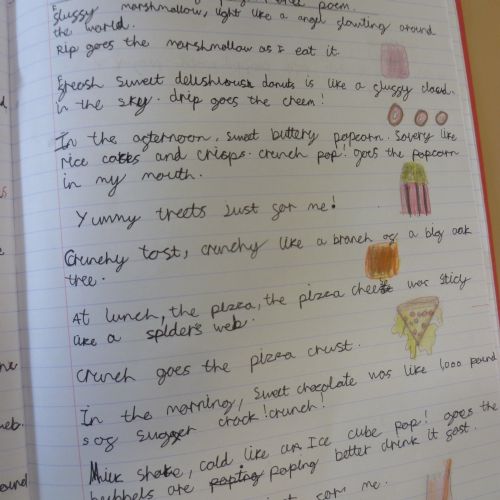 poem.
fluffy marshmallow, light like a angel flowting around
the world.
Rip goes the marshmallow as I eat it.
freash sweet delishious donuts is like a fluffy cloud.
in the sky. drip goes the cheem!
In the afternoon, sweet buttery popcorn. Savery like
rice cakes and crisps. crunch pop! goes the popcorn
in my mouth.
Yummy treets Just for me!
Crunchy tost, crunchy like a branch of a bog oak
tree.
At lunch, the pizza, the pizza cheese was sticy
like a spider's web.
Crunch goes the pizza crust.
In the morning, sweet chocolate was like 1,000 pound
s of sugger crack! crunch!
Milk shake, cold like an Ice cube pop! goes the
bubbels are poping better drink it fast.
for me.